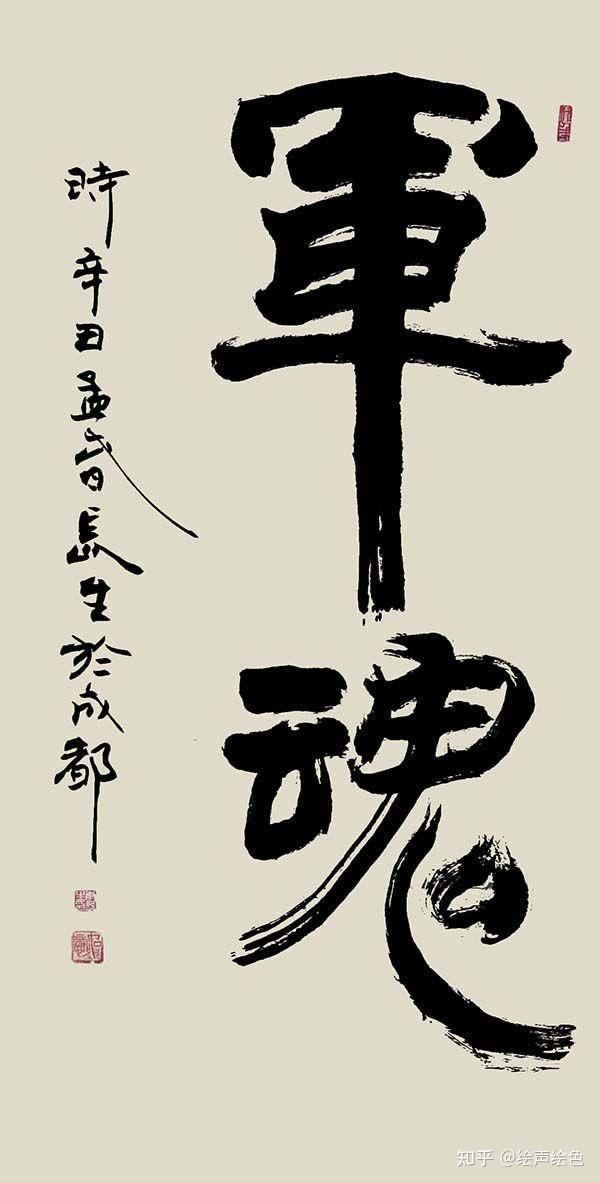 軍魂
時辛丑孟春長生於成都
知乎 @绘声绘色